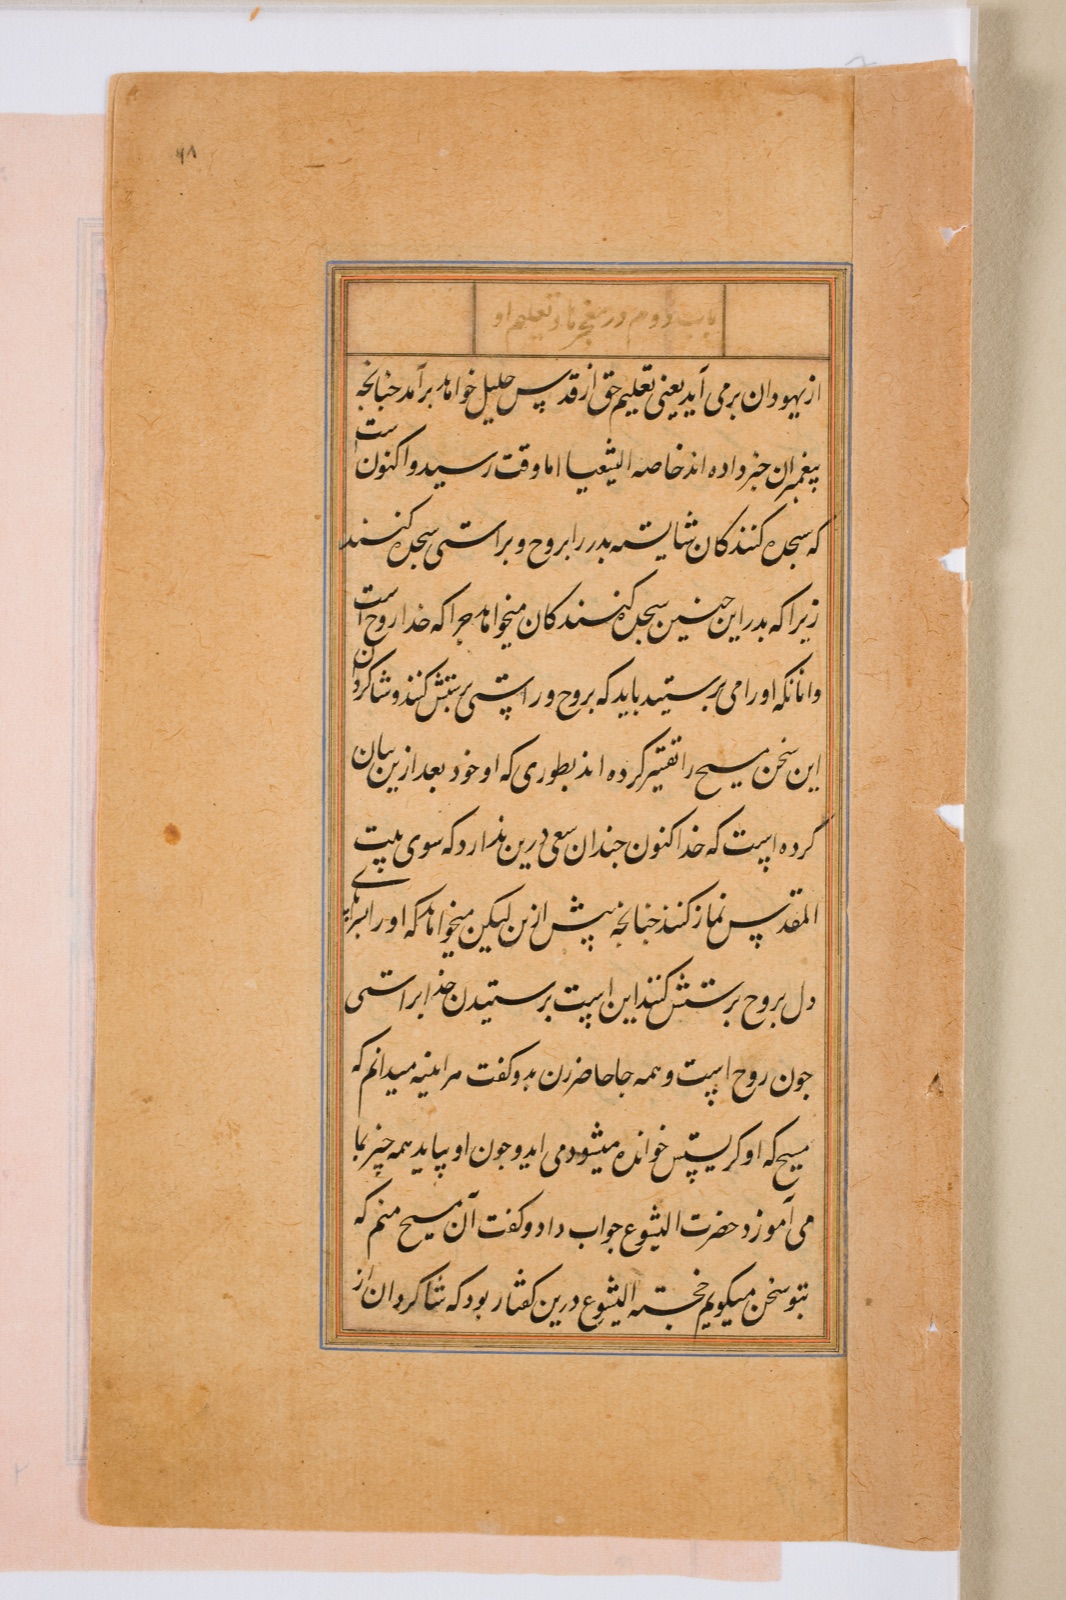 ۶۸
باب دوم در معجزها و تعلیم او
از یهودان برمی آید یعنی تعلیم حق از قدس خلیل خواهد برآمد جنانجه
پیغمبران خبر داده اند خاصه الیشعیا اما وقت رسید و اکنون است
که سجده کنندکان شایسته بدر را بروح و براستی سجده کنند
زیرا که بدر این جنین سجده کنندکان میخواهد جرا که خدا روح است
و انانکه او را می برستید باید که بروح و راستی برستش کنند و شاکردان
این سخن مسیح را تفسیر کرده اند بطوری که او خود بعد ازین بیان
کرده است که خدا کنون جندان سعی درین ندارد که سوی بیت
المقدس نماز کنند جنانجه بیش ازین لیکن میخواهد که او را
دل بروح برستش کنند این است برستیدن خدا براستی
جون روح است و همه جا حاضر زن بدو کفت مر اینه میدانم که
مسیح که او کریستس خوانده میشود می اید و جون او بیاید همه چیز بما
می آموزد حضرت الیشوع جواب داد و کفت آن مسیح منم که
بتو سخن میکویم خجسته الیشوع درین کفتار بود که شاکردان از